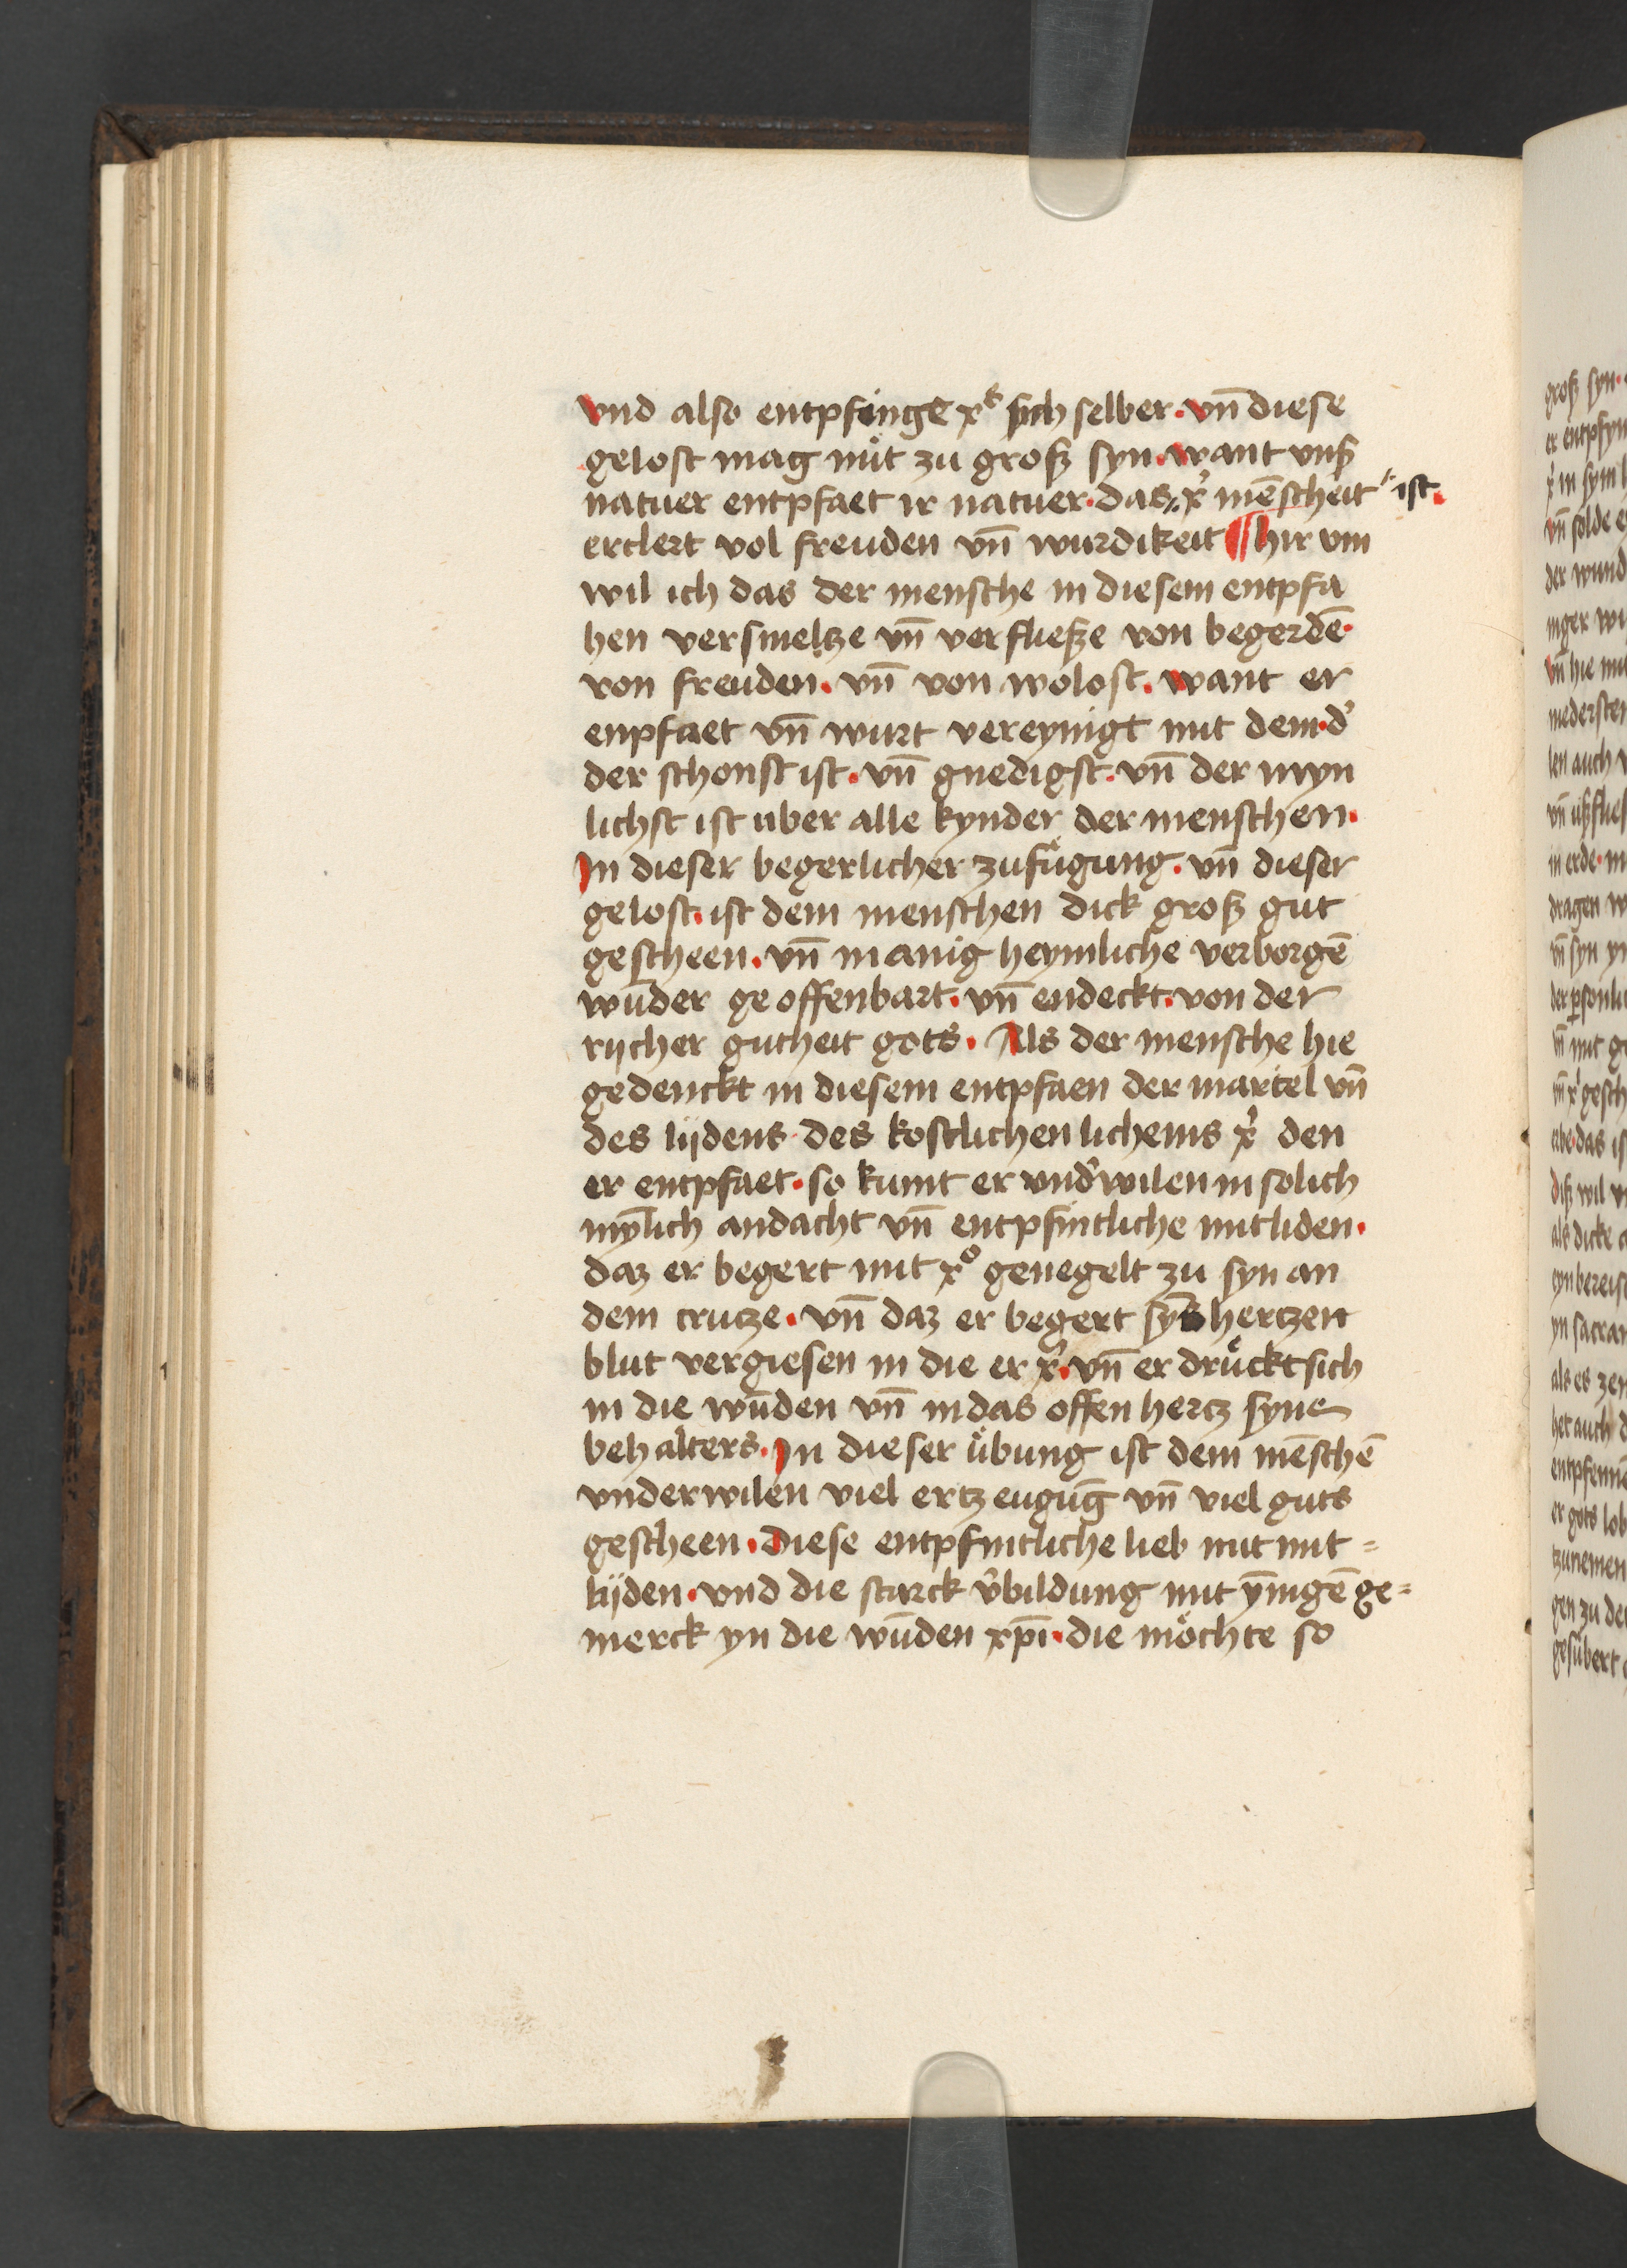 vnd also entpfinge xꝰ sich selber · vn̄ diese
gelost mag nuͤt zu groß syn · want vnß
natuer entpfaet ir natuer · das x̓ mēscheit ist ·
erclert vol freuden vn̄ wurdikeit ¶ hir vm
wil ich das der mensche in diesem entpfa
hen versmeltze vn̄ verfließe von begerdē ·
von freuden · vn̄ von wolost · want er
enpfaet vn̄ wurt vereynigt mit dem · d̓
der schonst ist · vn̄ gnedigst · vn̄ der myn
lichst ist uber alle kynder der menschen ·
In dieser begerlicher zufuͤgung · vn̄ dieser
gelost · ist dem menschen dick groß gut
gescheen · vn̄ manig heymliche verborgē
wūder geoffenbart · vn̄ endeckt · von der
rijcher gutheit gots · Als der mensche hie
gedenckt in diesem entpfaen der martel vn̄
des lijdens des kostlichen lichems x̓ den
er entpfaet · so kumt er vnd̓wilen in solich
mȳlich andacht vn̄ entpfintliche mitliden ·
daz er begert mit xͦ genegelt zu syn an
dem crutze · vn̄ daz er begert sȳs hertzen
blut vergiesen in die er x̓ · vn̄ er druͤckt sich
in die wūden vn̄ in das offen hertz syne
behalters · In dieser uͤbung ist dem mēschē
vnderwilen viel ertzeugūg vn̄ viel guts
gescheen · Diese entpfintliche lieb mit mit =
lijden · vnd die starck v̓bildung mit ȳnigē ge =
merck yn die wūden xp̄i · die moͤchte so